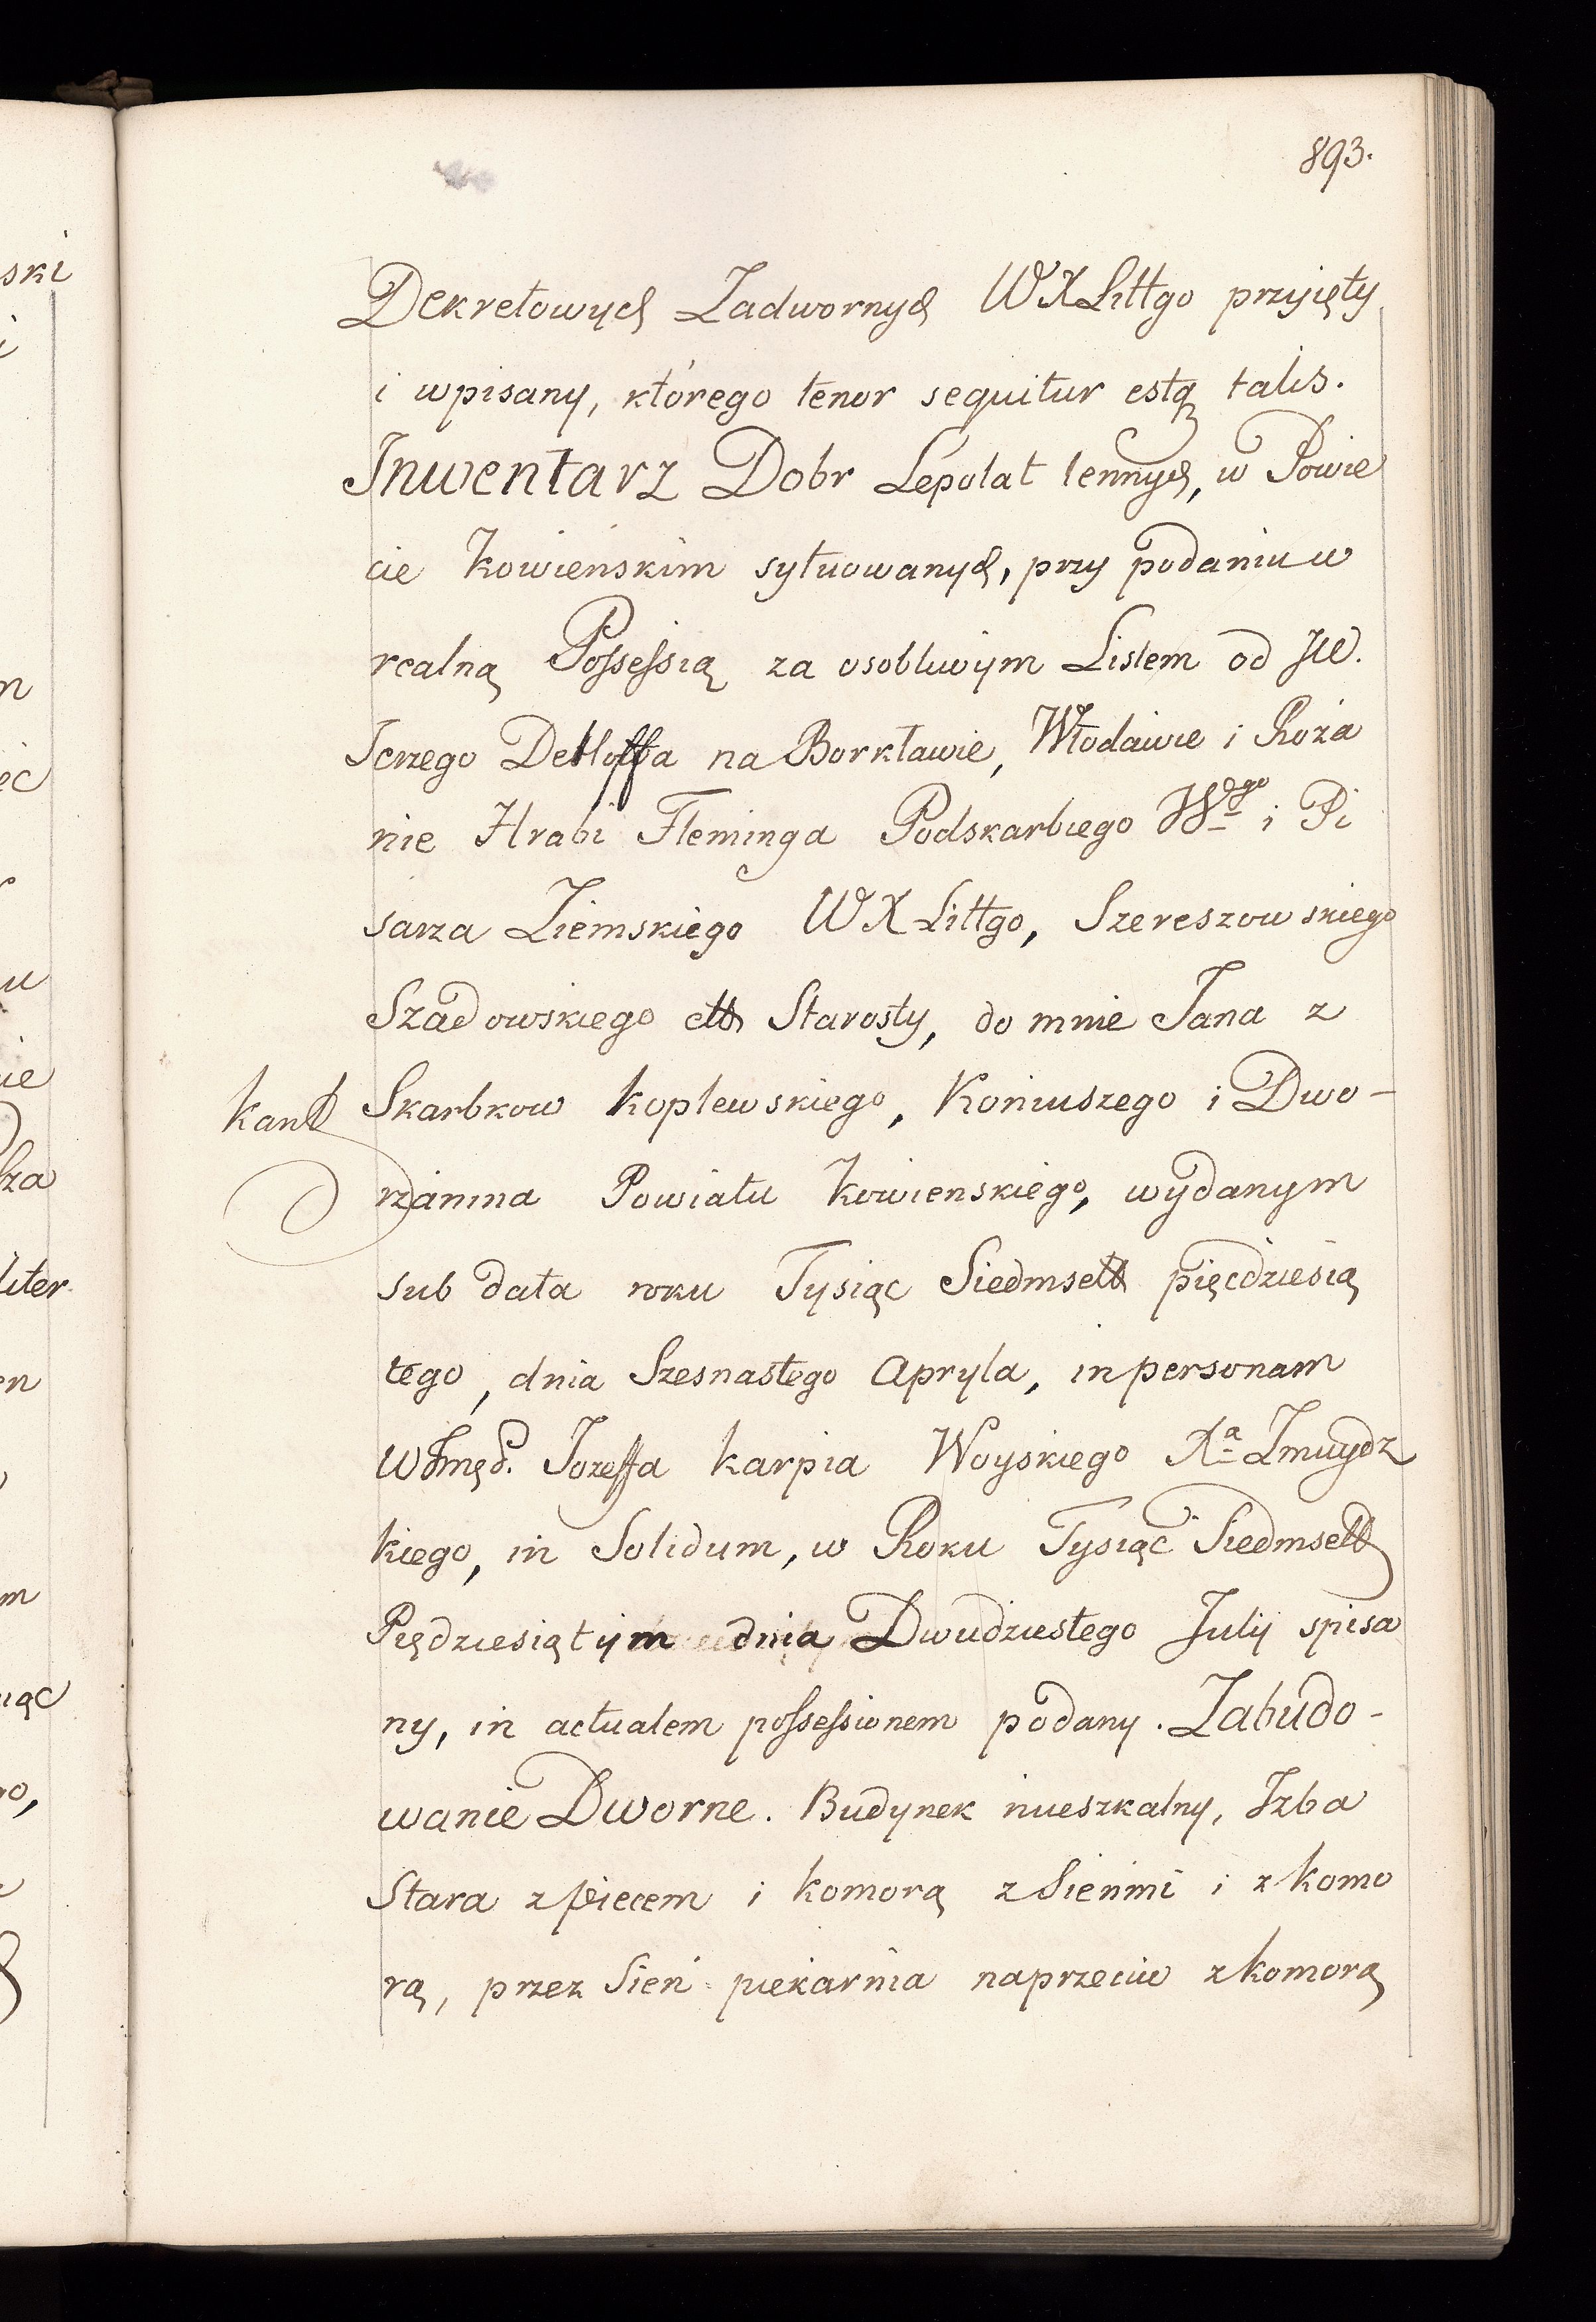 893.
Dekretowych Zadwornych WXLittgo przyięty
i wpisany, którego tenor sequitur estq talis.
Inwentarz Dobr Lepolat lennych, w Powie
cie Kowieńskim sytuowanych, przy podaniu w
realną Possessią za osobliwym Listem od JW.
Jerzego Detloffa na Borkławie, Włodawie i Roża
nie Hrabi Fleminga Podskarbiego Wgo i Pi
sarza Ziemskiego WXLittgo, Szereszowskiego
Szadowskiego ett Starosty, do mnie Jana z
Skarbkow Koplewskiego, Koniuszego i Dwo-
rzanina Powiatu Kowienskiego, wydanym
sub data roku Tysiąc Siedmsett pięćdziesią
tego, dnia Szesnastego Apryla, in personam
Józeffa Karpia Woyskiego Xa Zmuydz
kiego, in Solidum, w Roku Tysiąc Siedmsett
Piędziesiątym dnia Dwudziestego Julij spisa
ny, in actualem possessionem podany. Zabudo-
wanie Dworne. Budynek mieszkalny, Izba
Stara z piecem i komorą z Sieńmi i z komo
rą, przez Sień piekarnia naprzeciw z komorą
ski
ie
liter
m